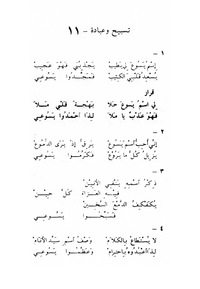 تسبيح وعبادة - ١١
- ١
إسم يسوع لي يطيب يجذبني فهو عجيب
يسعد قلبي الكئيب فمجدوا يسوعي
قرار
في اسم يسوع حلا بهجة قلبي ملا
فهو عذب ما غلا لذا احمدوا يسوعي
- ٢
إني أحب اسم يسوع يرق إذ يرى الدموع
يزيل كل ما يروع فكرموا يسوعي
- ٣
ذكر اسمه يشفي الأنين
فيه العزاء كل حين
يكفكف الدمع السخين
فسبحوا يسوعي
- ٤
لا يستطاع بالكلام وصف اسم سيد الأنام
لذا اعبدوه باحترام وعظموا يسوعي